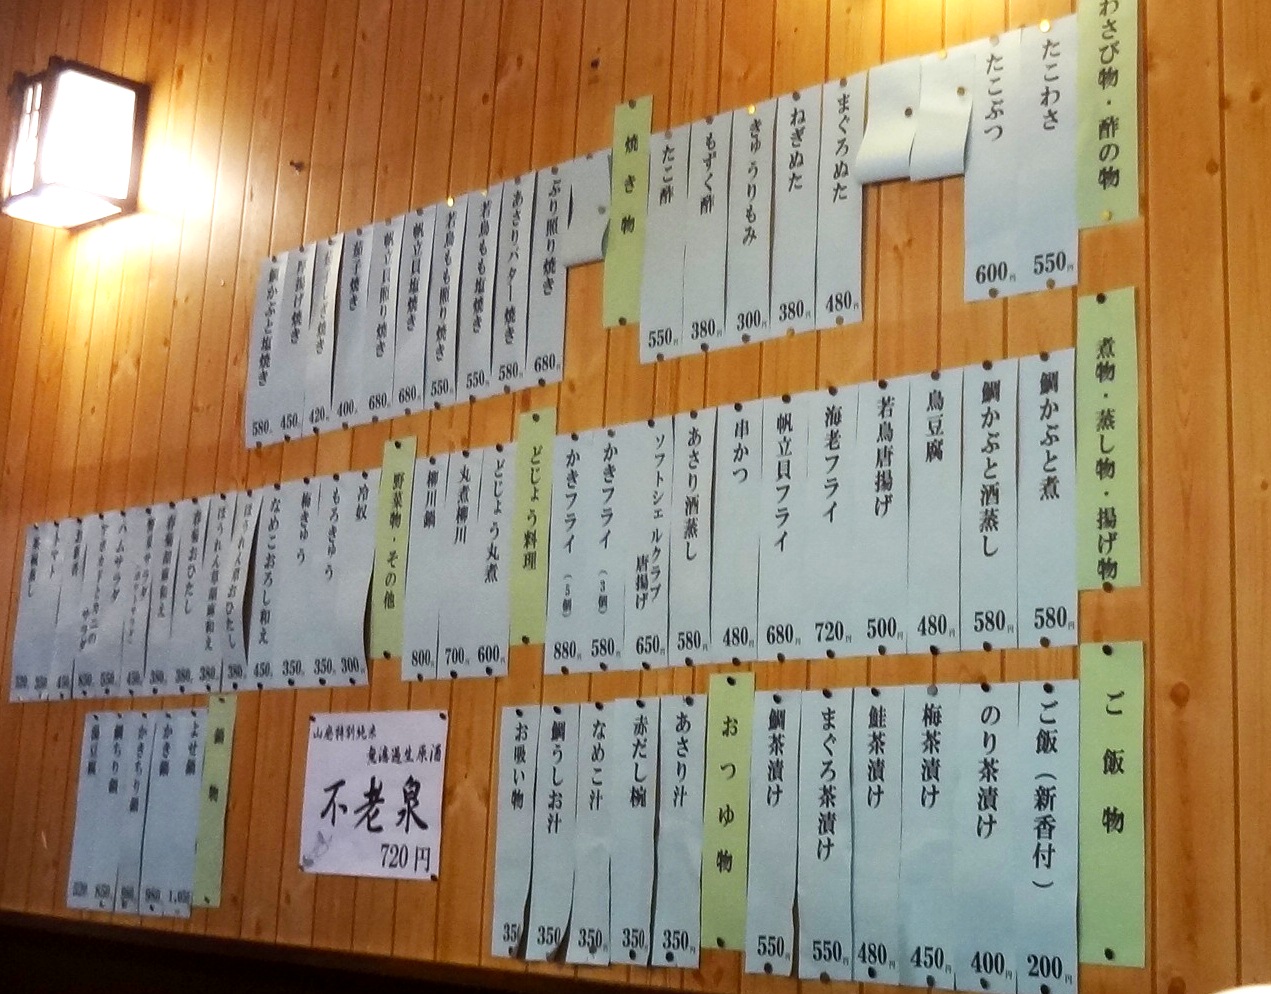 わさび物・酢の物
たこわさ 550円
たこぶつ 600円
まぐろぬた 480円
ねぎぬた 380円
きゅうりもみ 300円
もずく酢 380円
たこ酢 550円
焼き物
ぶり照り焼き 680円
あさりバター焼き 580円
若鳥もも塩焼き 550円
若鳥もも照り焼き 550円
帆立貝塩焼き 680円
帆立貝照り焼き 680円
茄子焼き 400円
420円
厚揚げ焼き 450円
鯛かぶと塩焼き 580円
煮物・蒸し物・揚げ物
鯛かぶと煮 580円
鯛かぶと酒蒸し 580円
鳥豆腐 480円
若鳥唐揚げ 500円
海老フライ 720円
帆立貝フライ 680円
串かつ 480円
あさり酒蒸し 580円
ソフトシェルクラブ
唐揚げ 650円
かきフライ（3個） 580円
かきフライ（5個） 880円
どじょう料理
どじょう丸煮 600円
丸煮柳川 700円
柳川鍋 800円
野菜物・その他
冷奴 300円
もろきゅう 350円
梅きゅう 350円
なめこおろし和え 450円
ほうれん草おひたし 380円
ほうれん草胡麻和え 380円
春菊おひたし 380円
春菊胡麻和え 380円
サラダ 450
アボカドとカニの
サラダ 550
ハムサラダ 850
お新香 450
トマト 350
ご飯物
ご飯（新香付） 200円
のり茶漬け 400円
梅茶漬け 450円
鮭茶漬け 480円
まぐろ茶漬け 550円
鯛茶漬け 550円
おつゆ物
あさり汁 350円
赤だし椀 350円
なめこ汁 350円
鯛うしお汁 350円
お吸い物 350
山廃特別純米
無濾過生原酒
不老泉
720円
鍋物
よせ鍋
かき鍋 980
かきちり鍋 980
鯛ちり鍋 850
湯豆腐